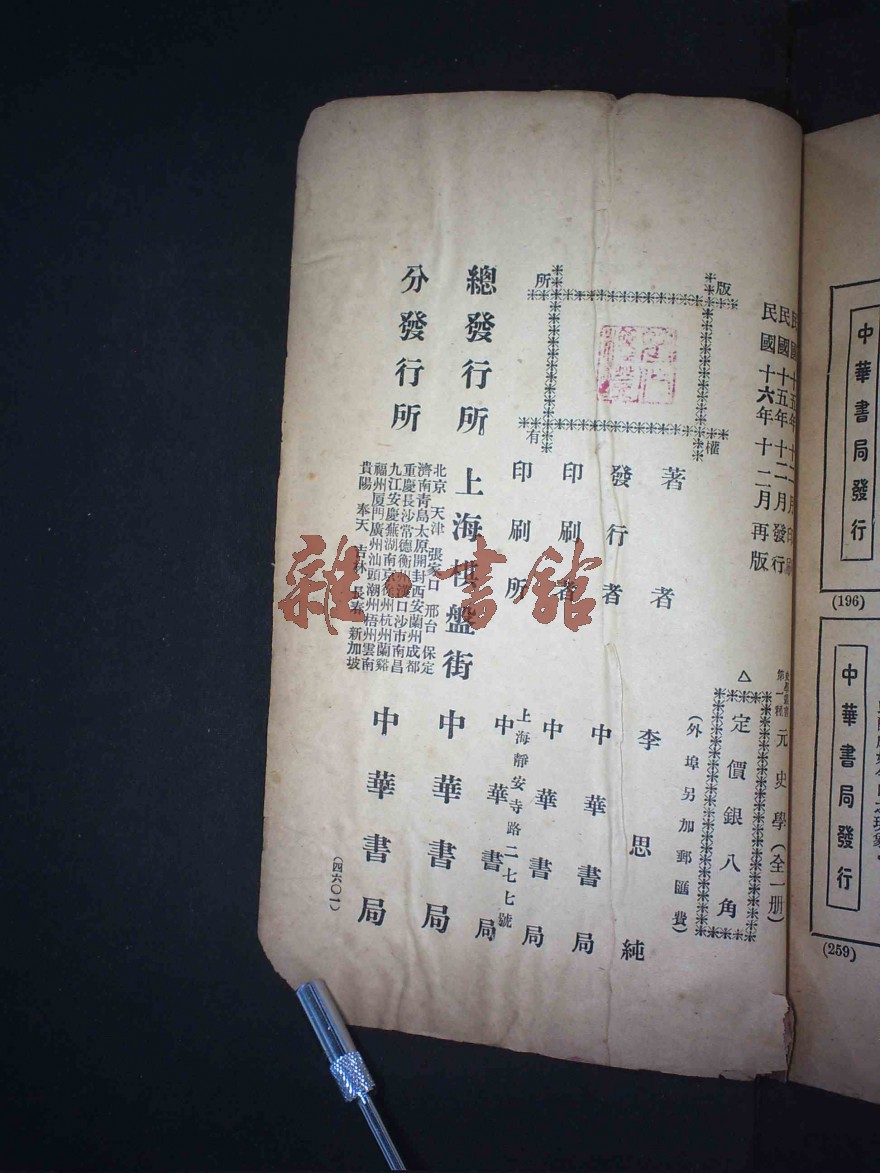 民國十五年十二月印刷
民國十五年十二月發行
民國十六年十二月再版
第一種 元史學（全一册）
△定價銀八角
（外埠另加郵匯費）
版權所有
著者 李思純
發行者 中華書局
印刷者 中華書局
上海靜安寺路二七七號
印刷所 中華書局
總發行所 上海棋盤街 中華書局
分發行所 中華書局
北京 天津 張家口 邢台 保定
濟南 青島 太原 開封 西安 蘭州 成都
重慶 長沙 常德 衡州 漢口 沙市 南昌
九江 安慶 蕪湖 南京 杭州 蘭谿
福州 厦門 廣州 汕頭 潮州 梧州 雲南
貴陽 奉天 吉林 長春 新加坡
（四六〇一）
中華書局發行
(196)
中華書局發行
(259)
雜書館